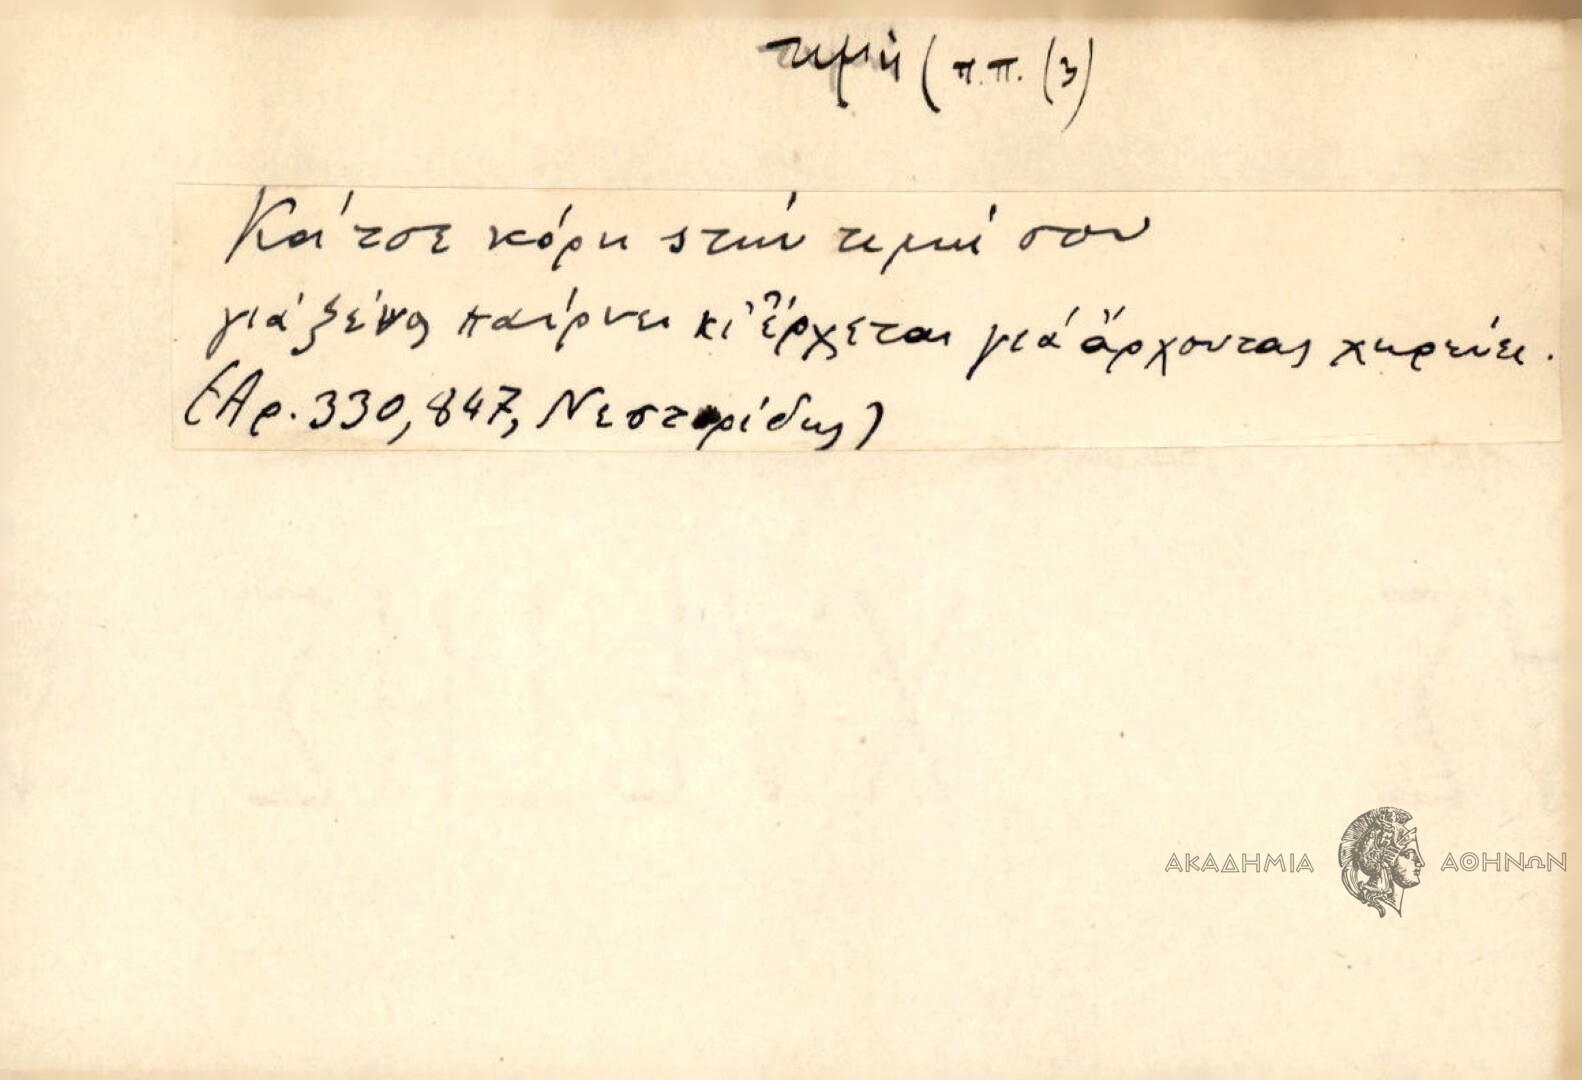 τιμή (π.π. (3)
Κάτσε κόρη στήν τιμή σου
γιά ξένος παίρνει κι' ἔρχεται γιά ἄρχοντας χηρεύει.
(Αρ. 330, 847, Νεστορίδης)
ΑΚΑΔΗΜΙΑ ΑΘΗΝΩΝ